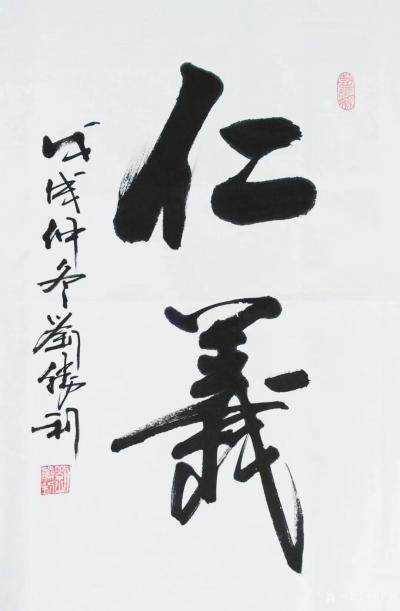 仁義
戊戌仲冬劉勝利